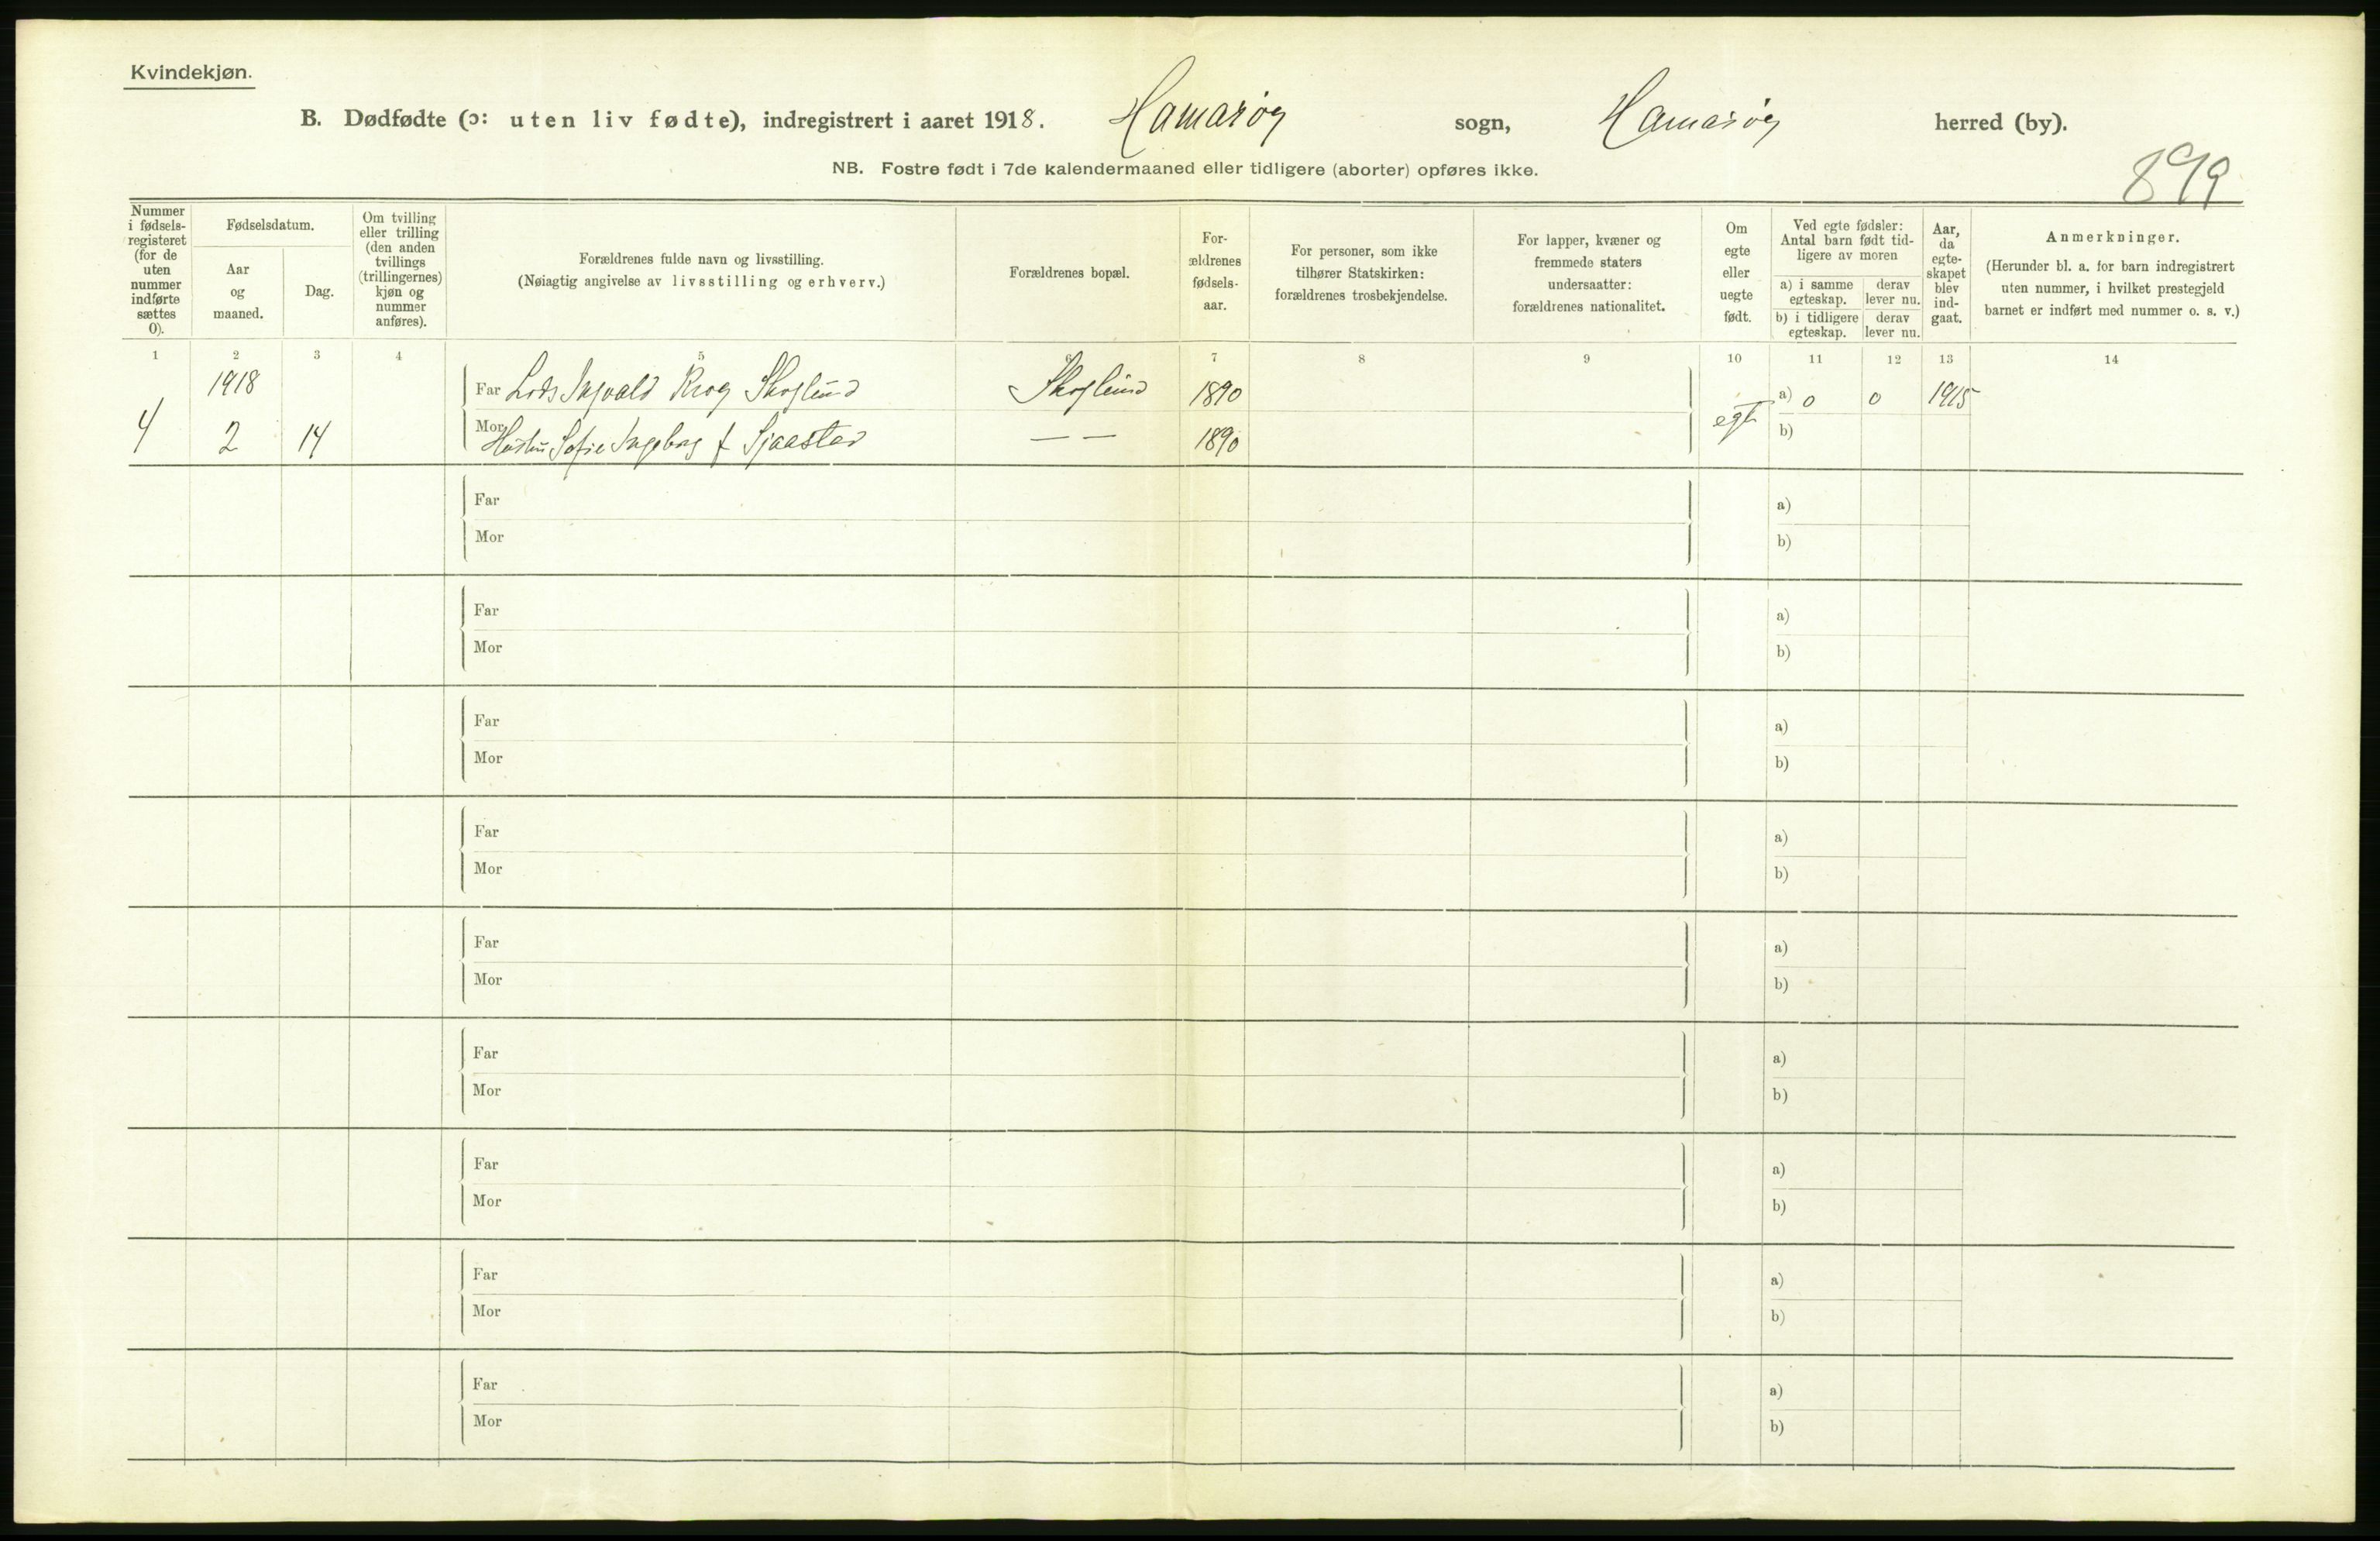 Kvindekjøn.
B. Dødfødte (ɔ: uten liv fødte), indregistrert i aaret 1918. Hamarøy sogn, Hamarøy herred (by).
NB. Fostre født i 7de kalendermaaned eller tidligere (aborter) opføres ikke.
899
Nummer i fødsels-registeret (for de uten nummer indførte sættes 0).
Fødselsdatum.
Aar og maaned.
Dag.
Om tvilling eller trilling (den anden tvillings (trillingernes) kjøn og nummer anføres).
Forældrenes fulde navn og livsstilling.
(Nøiagtig angivelse av livsstilling og erhverv.)
Forældrenes bopæl.
For-ældrenes fødsels-aar.
For personer, som ikke tilhører Statskirken: forældrenes trosbekjendelse.
For lapper, kvæner og fremmede staters undersaatter: forældrenes nationalitet.
Om egte eller uegte født.
Ved egte fødsler: Antal barn født tid-ligere av moren
a) i samme egteskap.
derav lever nu.
b) i tidligere egteskap.
derav lever nu.
Aar, da egte-skapet blev ind-gaat.
Anmerkninger.
(Herunder bl. a. for barn indregistrert uten nummer, i hvilket prestegjeld barnet er indført med nummer o. s. v.)
1 2 3 4 5 6 7 8 9 10 11 12 13 14
1918 Far Lods Ingvald Krog Skoglund Skoglund 1890 a) 0 0 1915
4 2 14 Mor Hustru Sofie Ingeborg f Sjaastad — — 1890 egte b)
Far a)
Mor b)
Far a)
Mor b)
Far a)
Mor b)
Far a)
Mor b)
Far a)
Mor b)
Far a)
Mor b)
Far a)
Mor b)
Far a)
Mor b)
Far a)
Mor b)